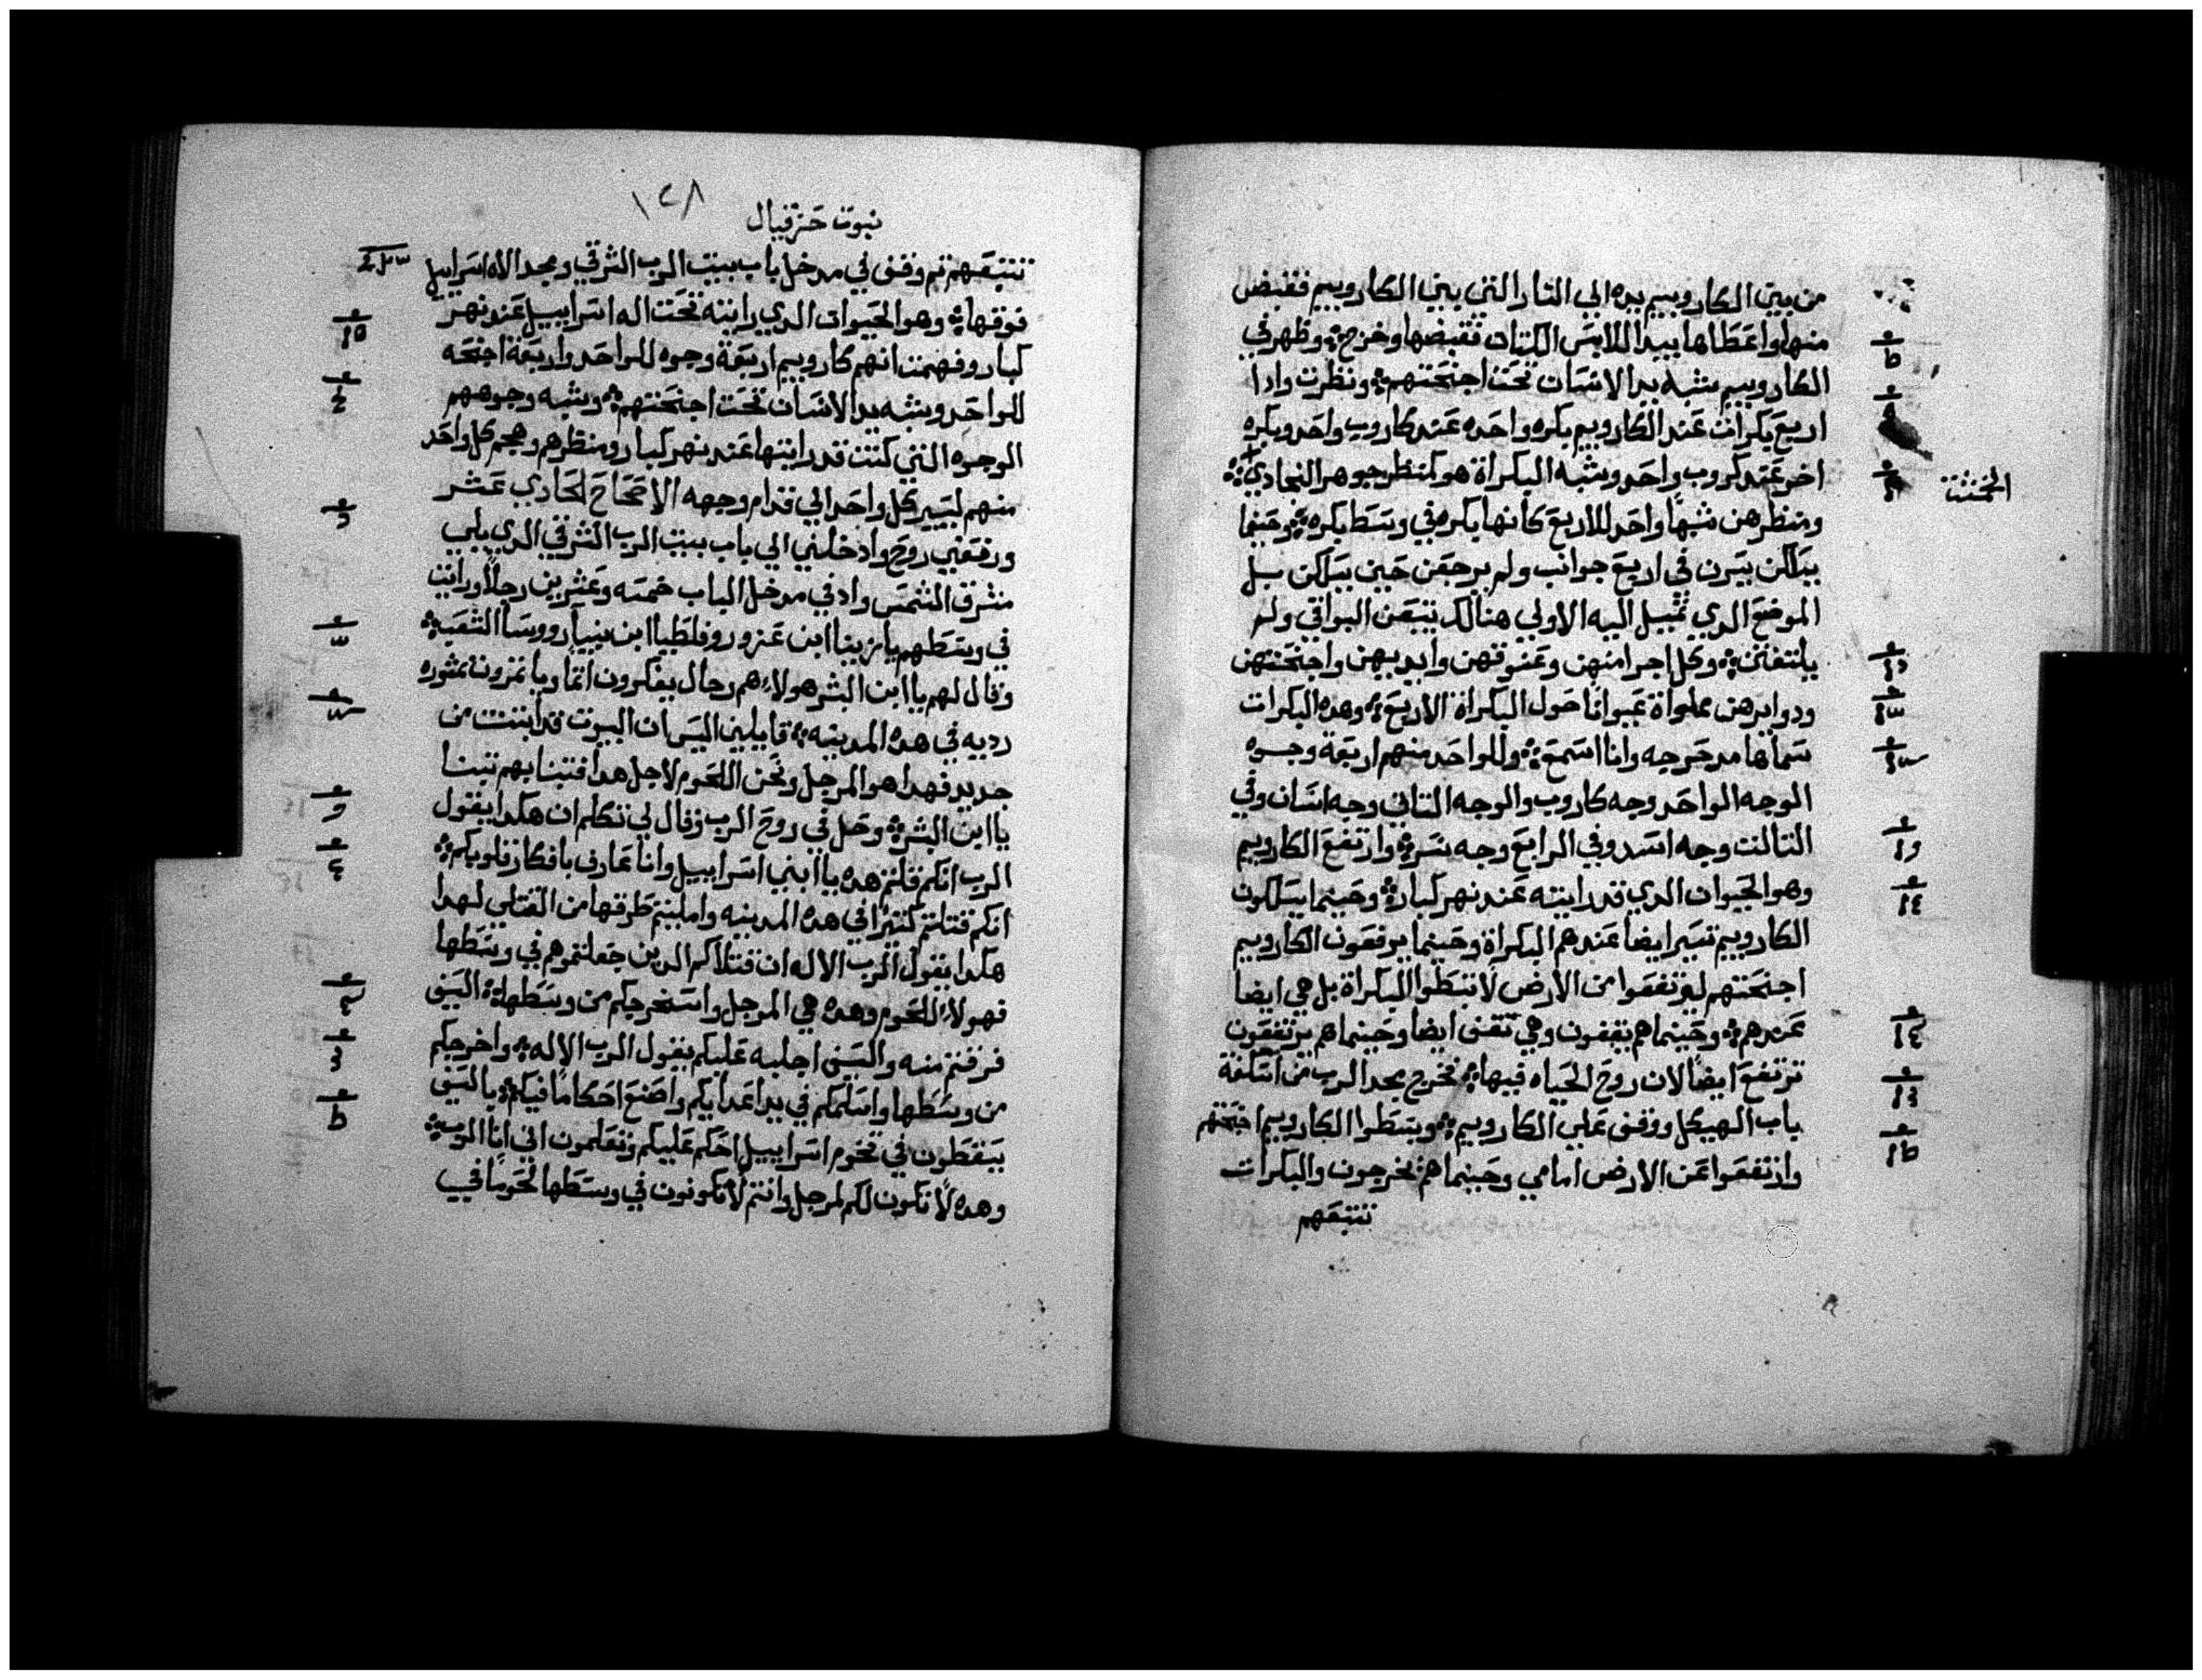 من بين الكاروبيم يده الي النار التي بين الكاروبيم فقبض
منها واعطاها بيد اللابس الكتان فقبضها وخرج وظهر في
الكاروبيم شبه يد الانسان تحت اجنحتهم ونظرت وادا
اربع بكرات عند الكاروبيم بكره واحده عند كاروب واحد وبكره
اخر عند كروب واحد وشبه البكراة هو كمنظر جوهر النجادي
الخشت
ومنظرهن شبها واحد للاربع كانها بكره في وسط بكره وحينما
يسلكن يسرن في اربع جوانب ولم يرجعن حين يسلكن بل
الموضع الدي تميل اليه الاولي هنالك يتبعن البواقي ولم
يلتفتن وكل اجرامنهن وعنوقهن وايديهن واجنحتهن
ودوايرهن مملواة عيوانا حول البكراة الاربع وهده البكرات
سماها مدحرجه وانا اسمع وللواحد منهم اربعة وجوه
الوجه الواحد وجه كاروب والوجه التاني وجه انسان وفي
التالت وجه اسد وفي الرابع وجه نسر وارتفع الكاروبيم
وهو الحيوان الدي قد رايته عند نهر كبار وحينما يسلكون
الكاروبيم تسير ايضا عندهم البكراة وحينما يرفعون الكاروبيم
اجنحتهم ليرتفعوا من الارض لا تبطوا البكراة بل هي ايضا
عندهم وحينما هم يقفون وهي تقف ايضا وحينما هم يرتفعون
ترتفع ايضا لان روح الحياه فيها فخرج مجد الرب من اسكفة
باب الهيكل ووقف علي الكاروبيم وبسطوا الكاروبيم اجنحتهم
وارتفعوا عن الارض امامي وحينما هم يخرجون والبكرات
تتبعهم
١٢٨
نبوت حزقيال
تتبعهم تم وقف في مدخل باب بيت الرب الشرقي ومجد الاه اسراييل
فوقها وهو الحيوان الدي رايته تحت اله اسراييل عند نهر
كبار وفهمت انهم كاروبيم اربعة وجوه للواحد واربعة اجنحه
للواحد وشبه يد الانسان تحت اجنحتهم وشبه وجوههم
الوجوه التي كنت قد رايتها عند نهر كبار ومنظرهم وهجم كل واحد
منهم ليسير كل واحد الي قدام وجهه الاصحاح الحادي عشر
ورفعني روح وادخلني الي باب بيت الرب الشرقي الدي يلي
مشرق الشمس واد في مدخل الباب خمسه وعشرين رجلا ورايت
في وسطهم يازينا ابن عزور وفلطيا ابن بنيا رووسا الشعب
وقال لهم يا ابن البشر هولاء هم رجال يفكرون اتما ويامرون بمشوره
رديه في هده المدينه قايلين اليس ان البيوت قد ابتنت من
جديد فهدا هو المرجل ونحن اللحوم لاجل هدا فتنبا بهم تنبا
يا ابن البشر وحل في روح الرب وقال لي تكلم ان هكدا يقول
الرب انكم قلتم هده يا ابني اسراييل وانا عارف بافكار قلوبكم
انكم قتلتم كتيرا في هده المدينه واملتم طرقها من القتلي لهدا
هكدا يقول الرب الاله ان قتلاكم الدين جعلتموهم في وسطها
فهولاء اللحوم وهده هي المرجل واستخرجكم من وسطها السيف
فزعتم منه والسيف اجلبه عليكم يقول الرب الاله واخرجكم
من وسطها واسلمكم في يد اعدايكم واصنع احكاما فيكم بالسيف
يسقطون في تخوم اسراييل احكم عليكم وتعلمون اني انا الرب
وهده لا تكون لكم لمرجل وانتم لا تكونون في وسطها لحوما في